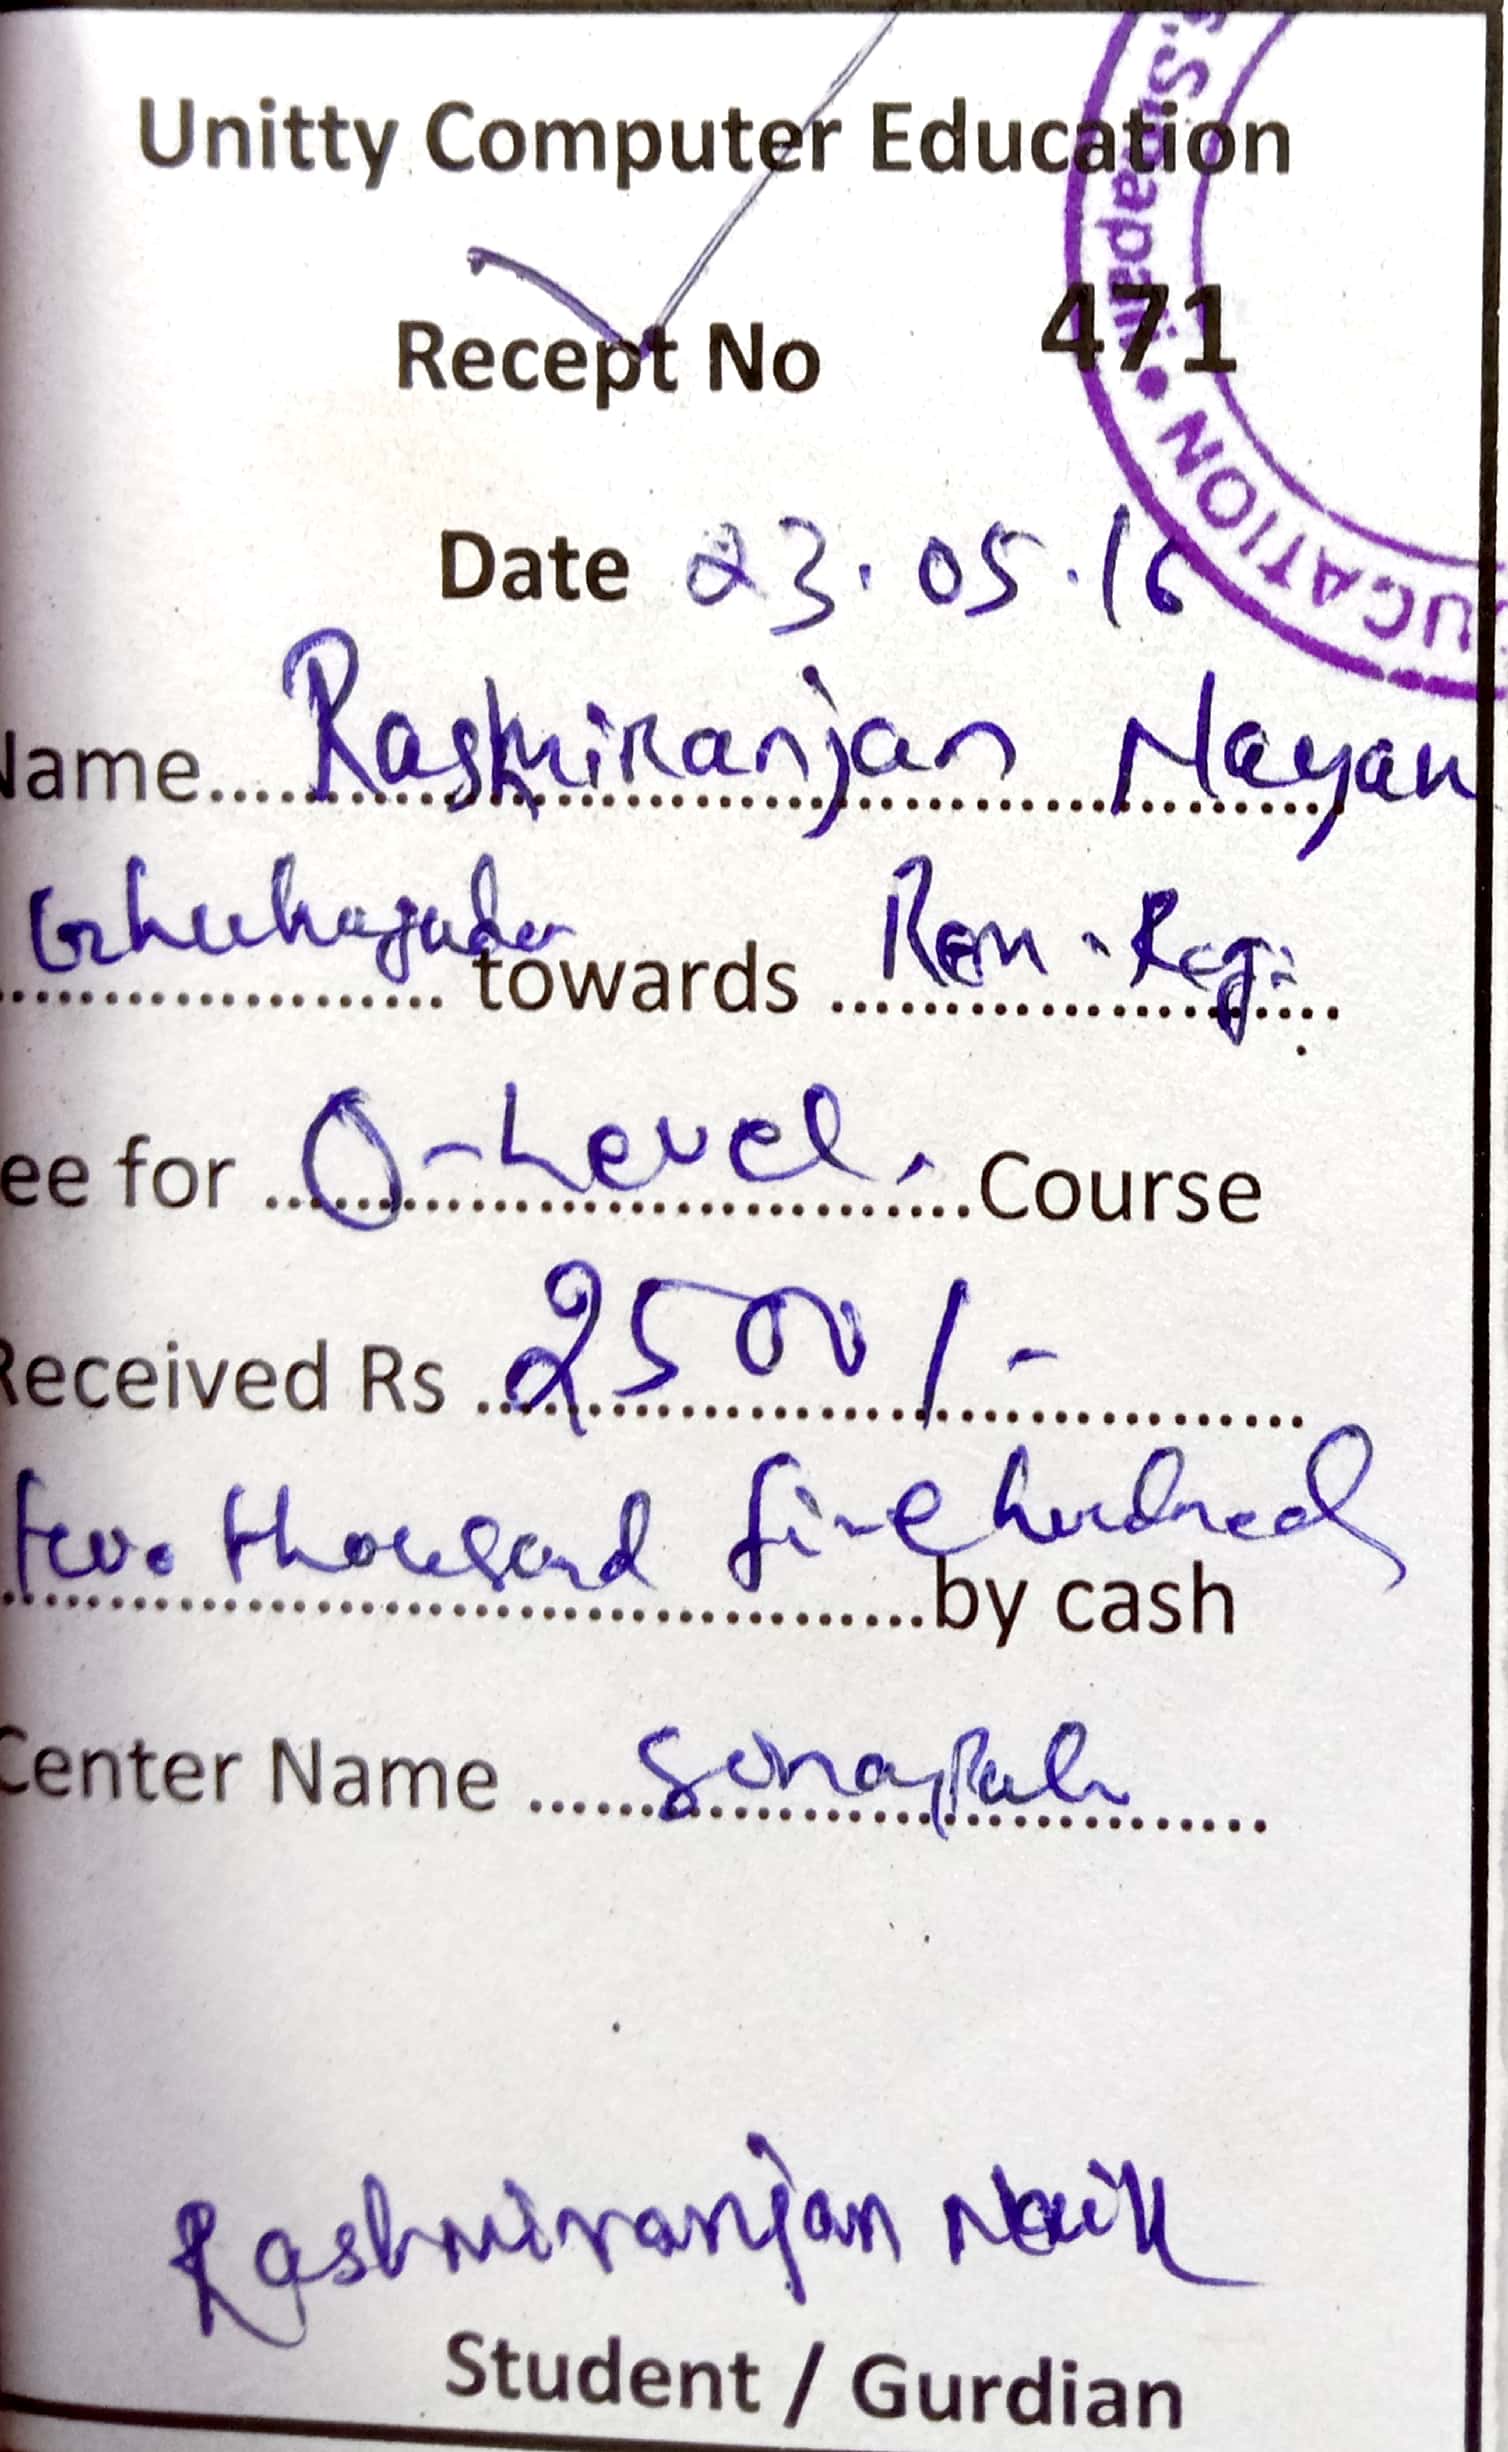 Unitty Computer Education
Recept No 471
Date 23.05.16
Name Rashmiranjan Nayak
towards Rem - Reg:
ee for O-Level. Course
Received Rs 2500/-
two thousand five hundred by cash
Center Name Sonapali
Rashmiranjan Naik
Student / Gurdian
UCATION